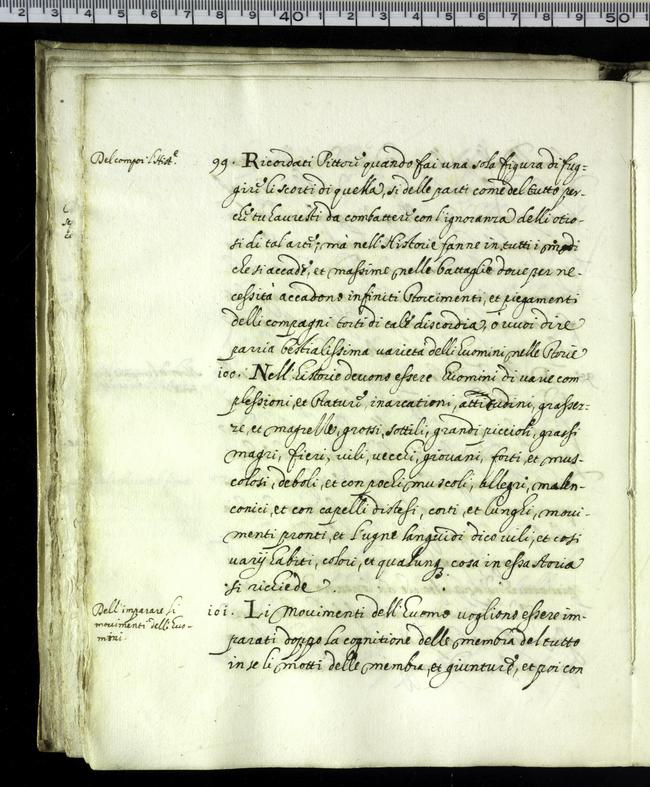 Del compor l'Hist.e
99. Ricordati Pittore quando fai una sola figura di fug-
gire li scorti di quella, sì delle parti come del tutto per-
che tu haveresti da combattere con l'ignoranza delli otio-
si di tal arte; mà nell'Historie fanne in tutti i modi
che si accade, et massime nelle battaglie dove per ne-
cessità accadono infiniti storcimenti, et piegamenti
delli compagni torti di tale discordia, ò vuoi dire
pazzia bestialissima varietà delli huomini nelle storie
100. Nell'historie devono essere huomini di varie com-
plessioni, et stature, incarnationi, attitudini, grasse-
re, et magrelle, grossi, sottili, grandi piccioli, grassi
magri, fieri, vili, vecchi, giovani, forti, et mus-
colosi, deboli, et con pochi muscoli, allegri, malen-
conici, et con capelli distesi, corti, et lunghi, movi-
menti pronti, et lugne languidi dico vili, et così
varij habiti, colori, et qualunq3 cosa in essa storia
si richiede.
Dell'imparare li
movimenti dell'huo-
mini.
101. Li movimenti dell'huomo vogliono essere im-
parati doppo la cognitione delle membra del tutto
in se li motti delle membra, et gionture, et poi con